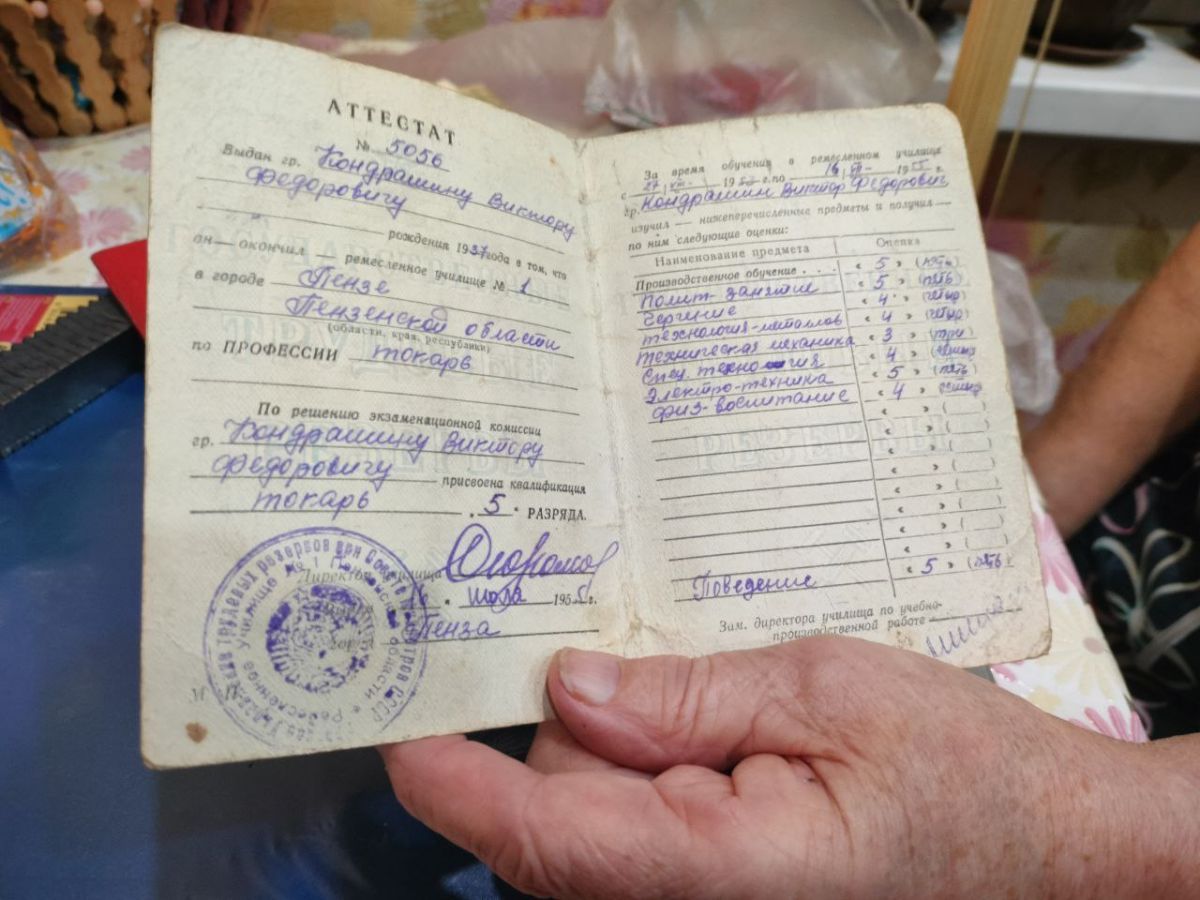 АТТЕСТАТ
№ 5056
Выдан гр. Кондрашину Виктору
Федоровичу
рождения 1937 года в том, что
он — окончил — ремесленное училище № 1
в городе Пензе
Пензенской области
(области, края, республики)
по ПРОФЕССИИ токарь
По решению экзаменационной комиссии
гр. Кондрашину Виктору
Федоровичу присвоена квалификация
токарь 5 РАЗРЯДА.
Директор училища
16 июля 1955 г.
Пенза
М П
трудовых резервов при Совете Министров СССР
Ремесленное училище № 1 Пензенской области
За время обучения в ремесленном училище
с 27 1953 г. по 16 1955 г.
гр. Кондрашин Виктор Федорович
изучил — нижеперечисленные предметы и получил —
по ним следующие оценки:
Наименование предмета Оценка
Производственное обучение . . . « 5 » (пять)
Полит занятие « 5 » (пять)
Черчение « 4 » (четыр)
технология-металлов « 4 » (четыр)
техническая механика « 3 » (три)
Спец. технология « 4 »
Электро-техника « 5 » (пять)
физ-воспитание « 4 »
Поведение « 5 » (пять)
Зам. директора училища по учебно-
производственной работе